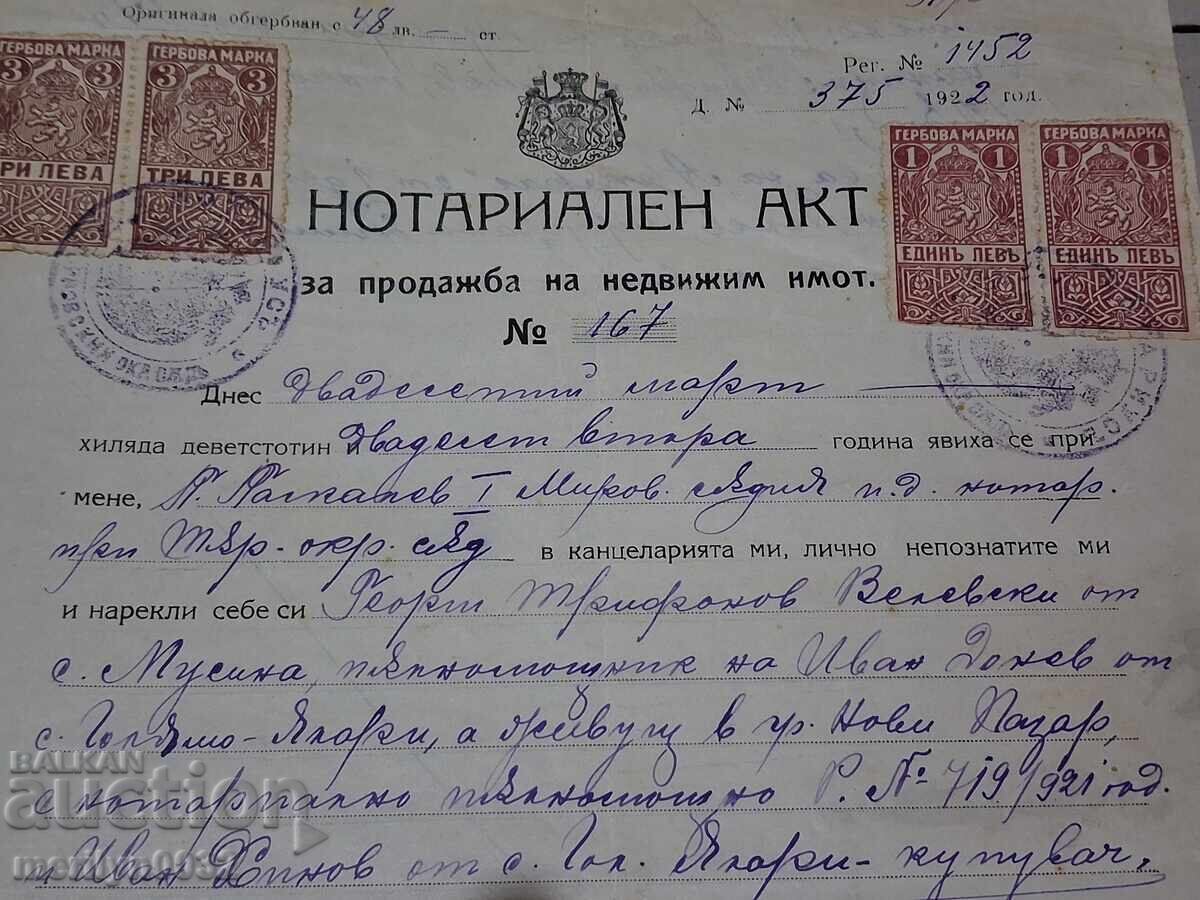 Оригинала обгербван с 48 лв. — ст.
Рег. № 1452
Д. № 375 1922 год.
ГЕРБОВА МАРКА
3 3
ТРИ ЛЕВА
ГЕРБОВА МАРКА
3 3
ТРИ ЛЕВА
ГЕРБОВА МАРКА
1 1
ЕДИНЪ ЛЕВЪ
ГЕРБОВА МАРКА
1 1
ЕДИНЪ ЛЕВЪ
НОТАРИАЛЕН АКТ
за продажба на недвижим имот.
№ 167
Днес двадесетий март
хиляда деветстотин и двадесет втора година явиха се при
мене, П. I Миров. сѫдия и.д. нотар.
при Тѫр. окр. сѫд в канцеларията ми, лично непознатите ми
и нарекли себе си Георги Трифонов Велевски от
с. Мусина, пѫлномощник на Иван Донев от
с. Голѣмо-Яларе, а живущ в гр. Нови Пазар,
с нотариално пѫлномощно Р. № 719/921 год.
и Иван от с. Гол. Яларе - купувач,
BALKAN
auction